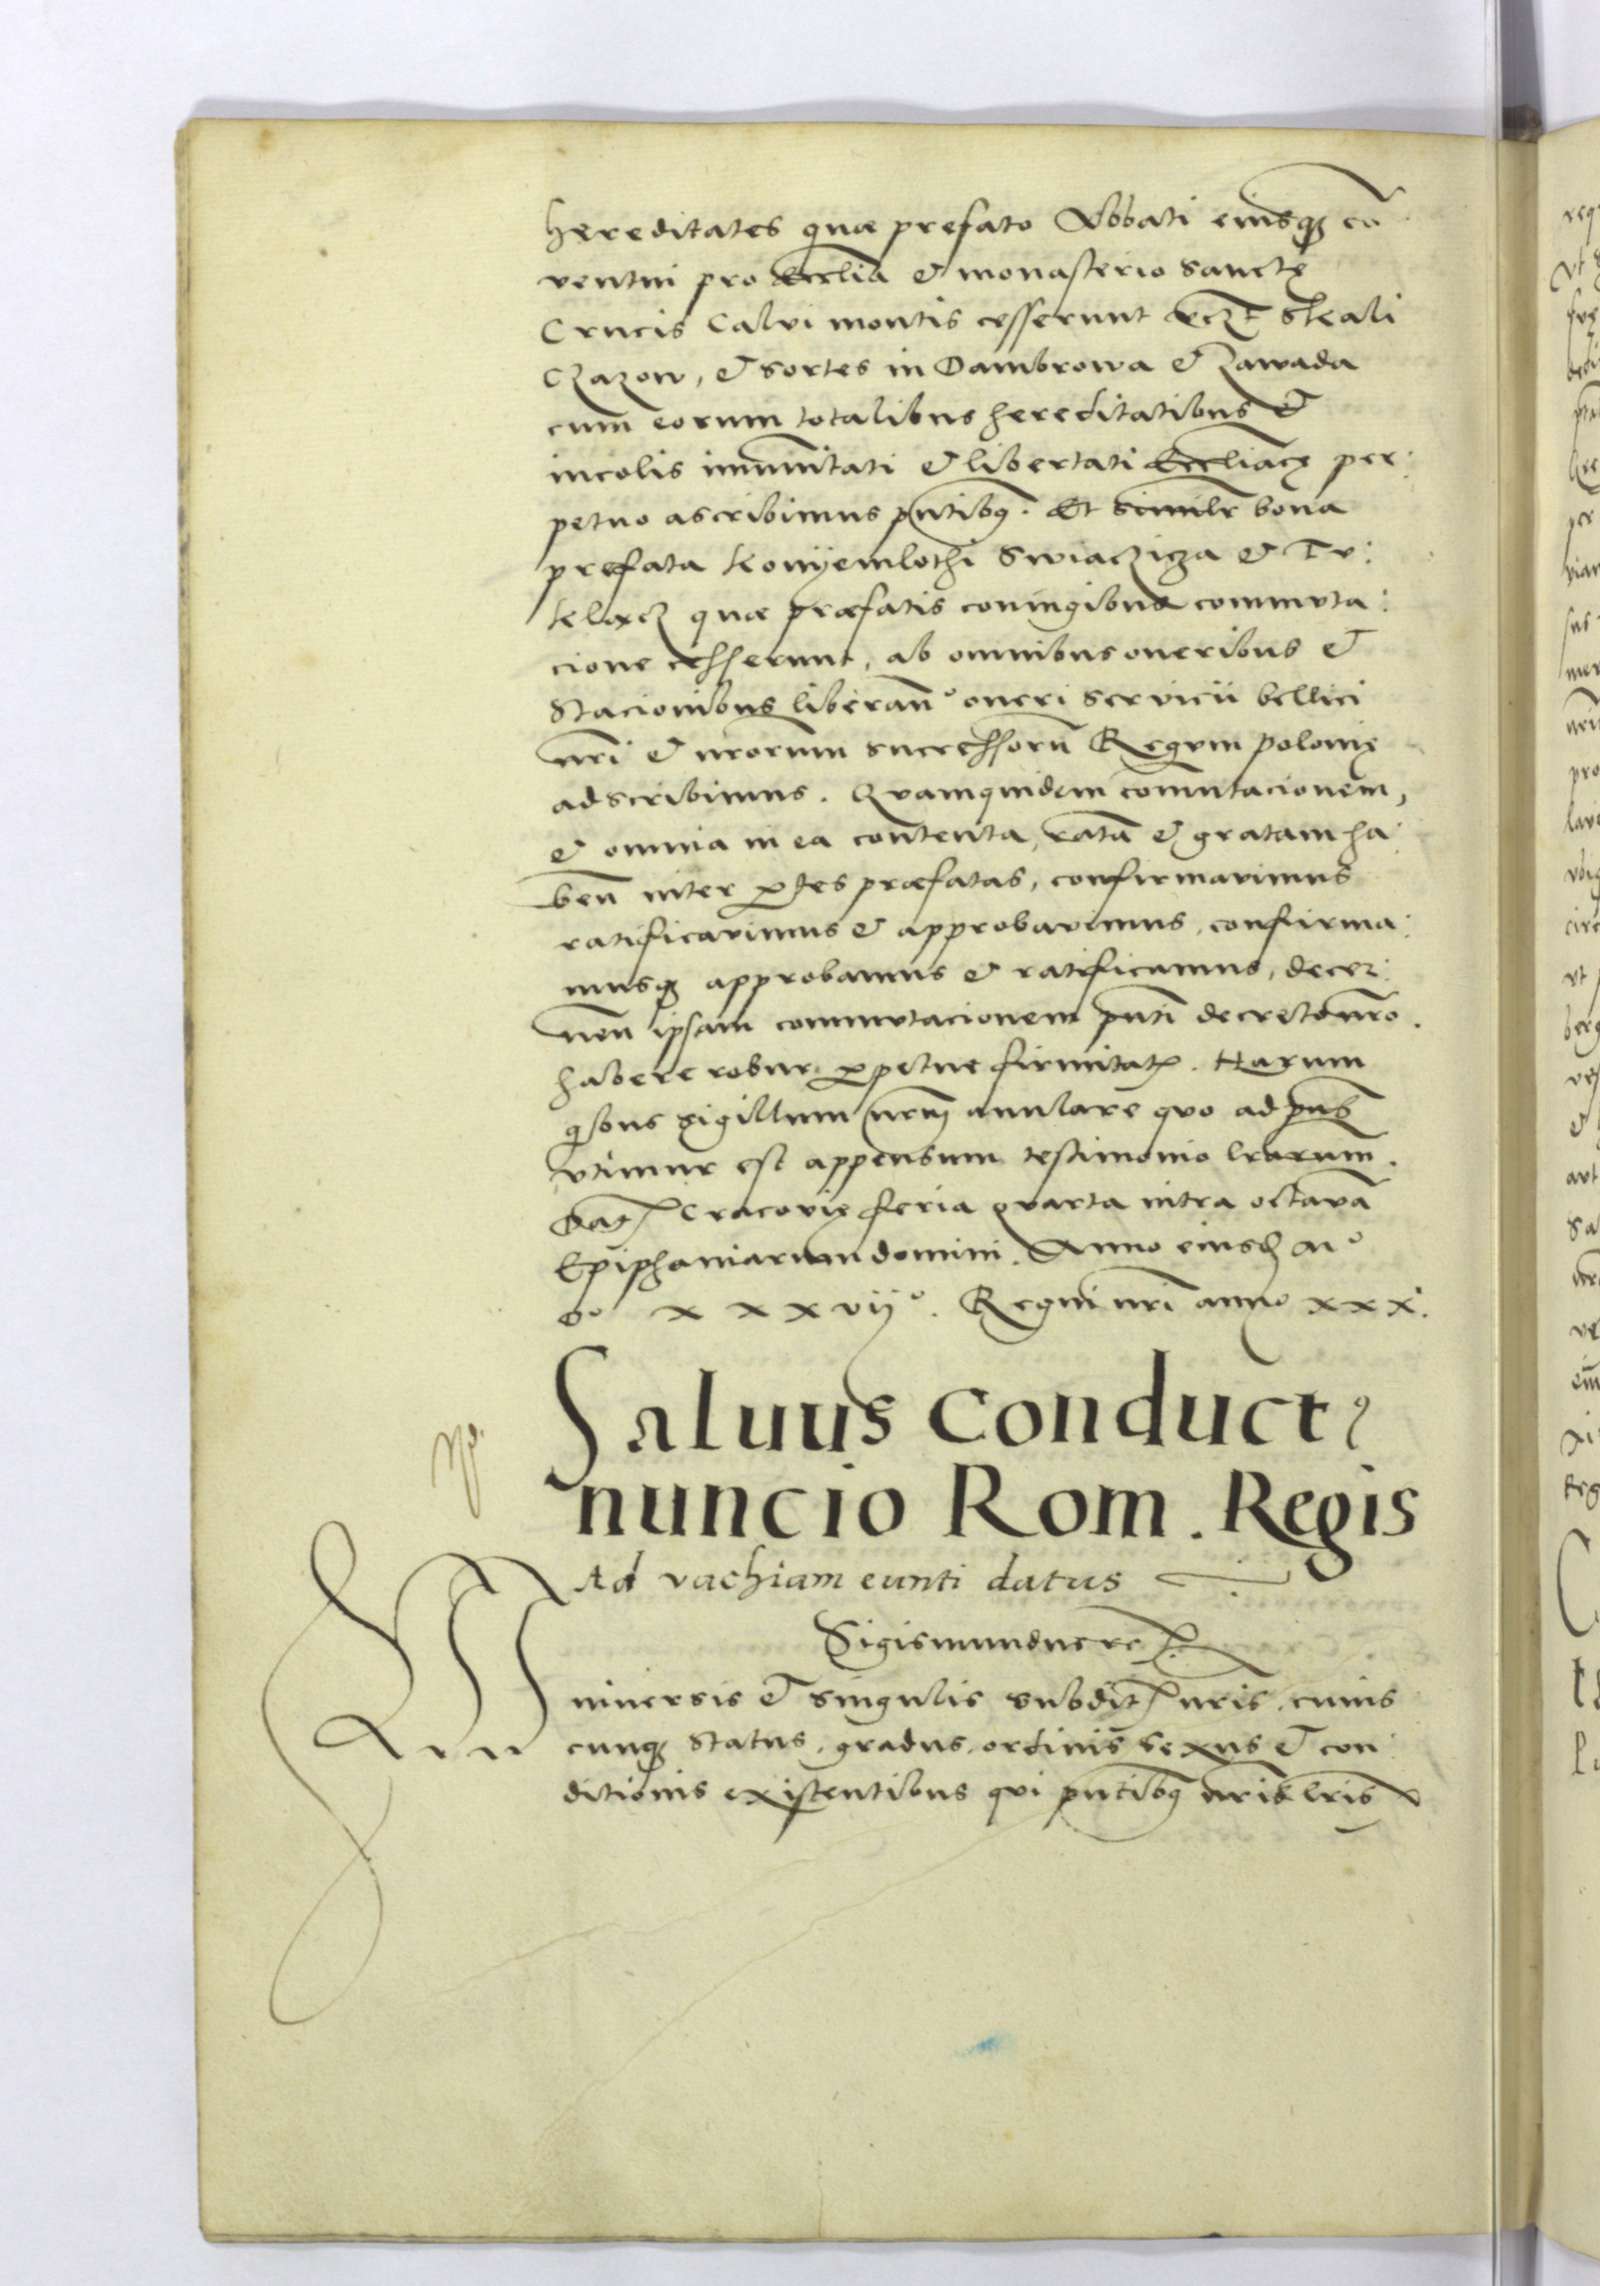 hereditates quæ prefato Abbati eiusq; cõ
ventui pro Eccl̃ia & monasterio Sanctę
Crucis Calvi montis cesserunt vcz̃t Skali
Czazow, & sortes in Dambrowa & Zawada
cum eorum totalibus hereditatibus &
incolis im̃unitati & libertati Eccl̃iacę per:
petuo ascribimus p̃ntibq. Et similr̃ bona
prefata Konyemlothi Swiaczicza & Tu:
klacz quæ præfatis coniugibus commuta:
cione cesserunt, ab omnibus oneribus &
Stacionibus liberan̄° oneri servicii bellici
nr̃i & nrorum successorũ Regum polonię
adscribimus. Quamquidem com̃utacionem,
& omnia in ea contenta, ratã & gratam ha:
ben̄ inter ptes præfatas, confirmavimus
ratificavimus & approbavimus, confirma:
musq; approbamus & ratificamus, decer:
nen̄ ipsam commutacionem p̃nti decreto nr̃o
habere robur ppetue firmitat. Harum
qibus sigillum nrm̃ anulare quo ad p̃ns
vtimur est appensum testimonio lrarum̃.
Dat Cracovię feria quarta intra octavã
Epiphaniarum domini. Anno eiusd M°
D° xxxvij°. Regni nr̃i anno xxx.
Saluus Conduct9
nuncio Rom. Regis
Ad vachiam eunti datus
Sigismundus re
Vniversis & singulis subdit nr̃is, cuius
cunq; status, gradus, ordinis sexus & con:
ditionis existentibus qui p̃ntibq nr̃is lr̃is